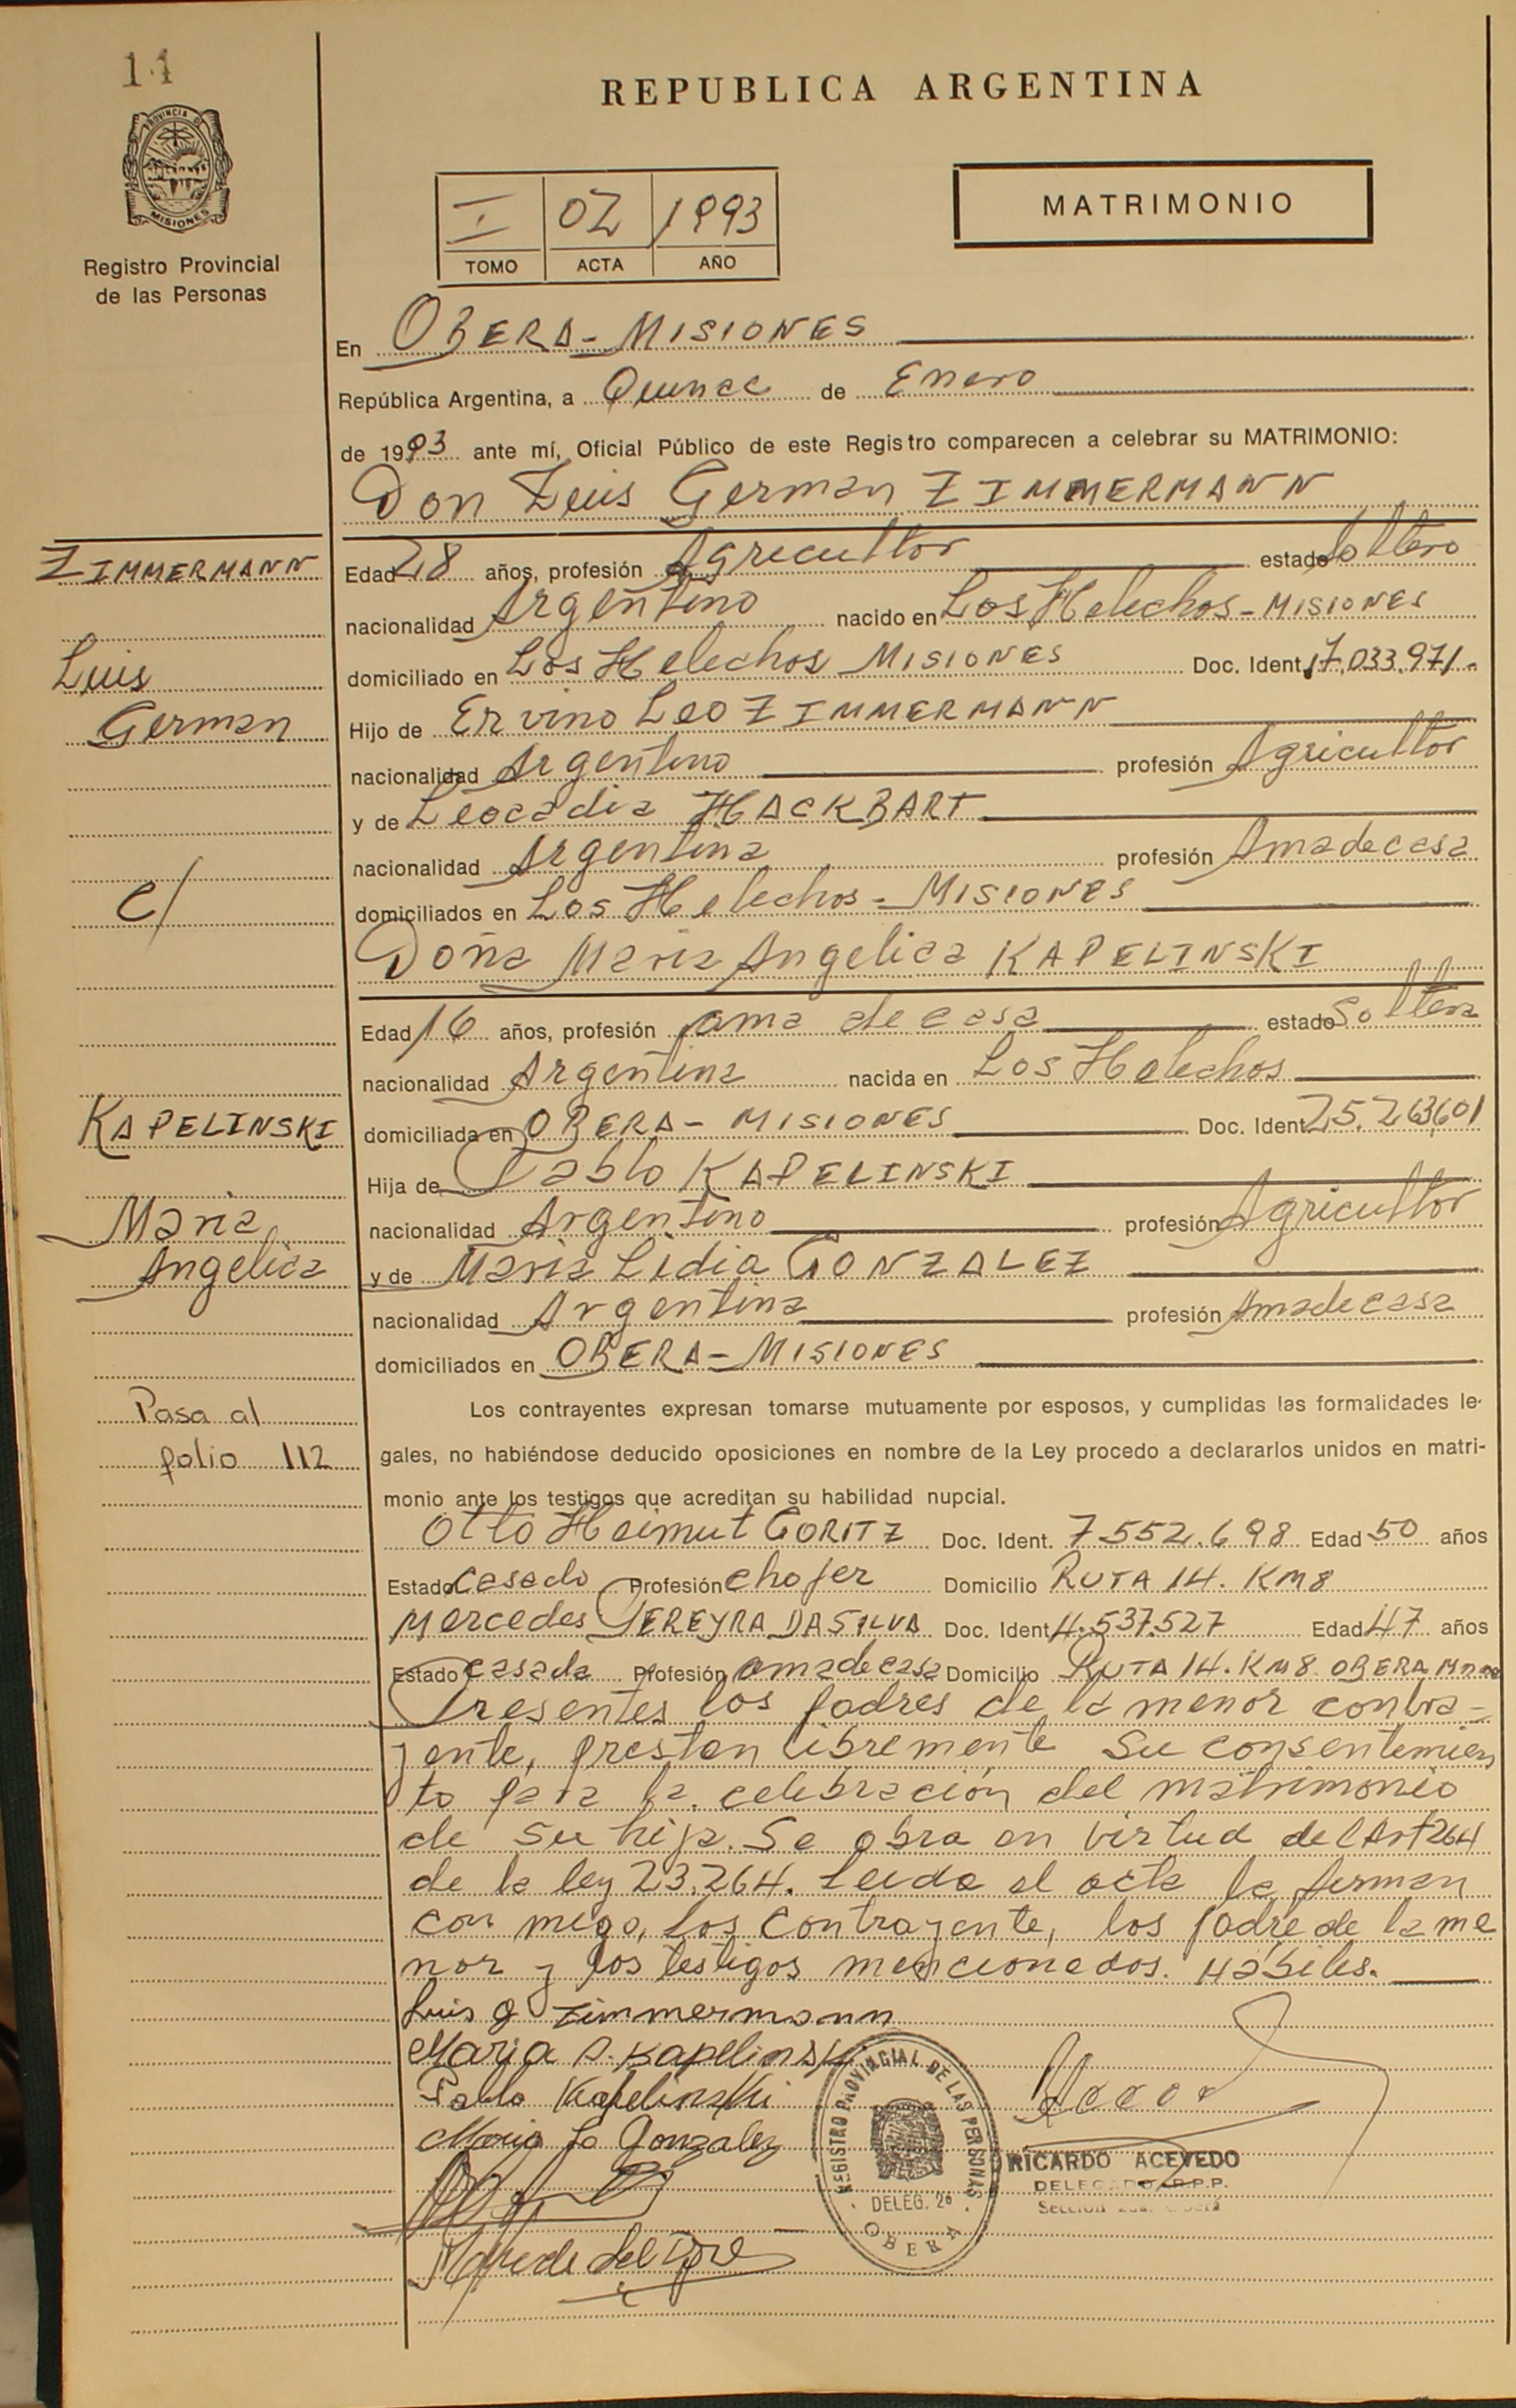 14
PROVINCIA D
MISIONES
Registro Provincial
de las Personas
REPUBLICA ARGENTINA
I 02 1993
TOMO ACTA AÑO
MATRIMONIO
En OBERA - MISIONES
República Argentina, a Quince de Enero
de 1993 ante mí, Oficial Público de este Registro comparecen a celebrar su MATRIMONIO:
Don Luis German ZIMMERMANN
ZIMMERMANN
Luis
German
c/
KAPELINSKI
Maria
Angelica
Pasa al
folio 112
Edad 28 años, profesión Agricultor estado Soltero
nacionalidad Argentino nacido en Los Helechos - MISIONES
domiciliado en Los Helechos MISIONES Doc. Ident. 17.033.971.
Hijo de Ervino Leo ZIMMERMANN
nacionalidad Argentino profesión Agricultor
y de Leocadia HACKBART
nacionalidad Argentina profesión Ama de casa
domiciliados en Los Helechos - MISIONES
Doña Maria Angelica KAPELINSKI
Edad 16 años, profesión ama de casa estado Soltera
nacionalidad Argentina nacida en Los Helechos
domiciliada en OBERA - MISIONES Doc. Ident. 25.263,601
Hija de Pablo KAPELINSKI
nacionalidad Argentino profesión Agricultor
y de Maria Lidia GONZALEZ
nacionalidad Argentina profesión Ama de casa
domiciliados en OBERA - MISIONES
Los contrayentes expresan tomarse mutuamente por esposos, y cumplidas las formalidades le-
gales, no habiéndose deducido oposiciones en nombre de la Ley procedo a declararlos unidos en matri-
monio ante los testigos que acreditan su habilidad nupcial.
Otto Heimut GORITZ Doc. Ident. 7.552.698 Edad 50 años
Estado Casado Profesión chofer Domicilio RUTA 14. KM 8
Mercedes PEREYRA DA SILVA Doc. Ident. 4.537.527 Edad 47 años
Estado casada Profesión ama de casa Domicilio RUTA 14. KM 8. OBERA
Presentes los padres de la menor contra-
yente, prestan libremente su consentimien
to para la celebración del matrimonio
de su hija. Se obra en virtud del Art 264
de la ley 23.264. Leida el acta la firman
con migo, los contrayente, los padre de la me
nor y los testigos mencionados. Habiles.
Luis G Zimmermann
Maria A. Kapelinski
Pablo Kapelinski
Maria L. Gonzalez
REGISTRO PROVINCIAL DE LAS PERSONAS
DELEG. 2ª
OBERA
RICARDO ACEVEDO
DELEGADO R.P.P.